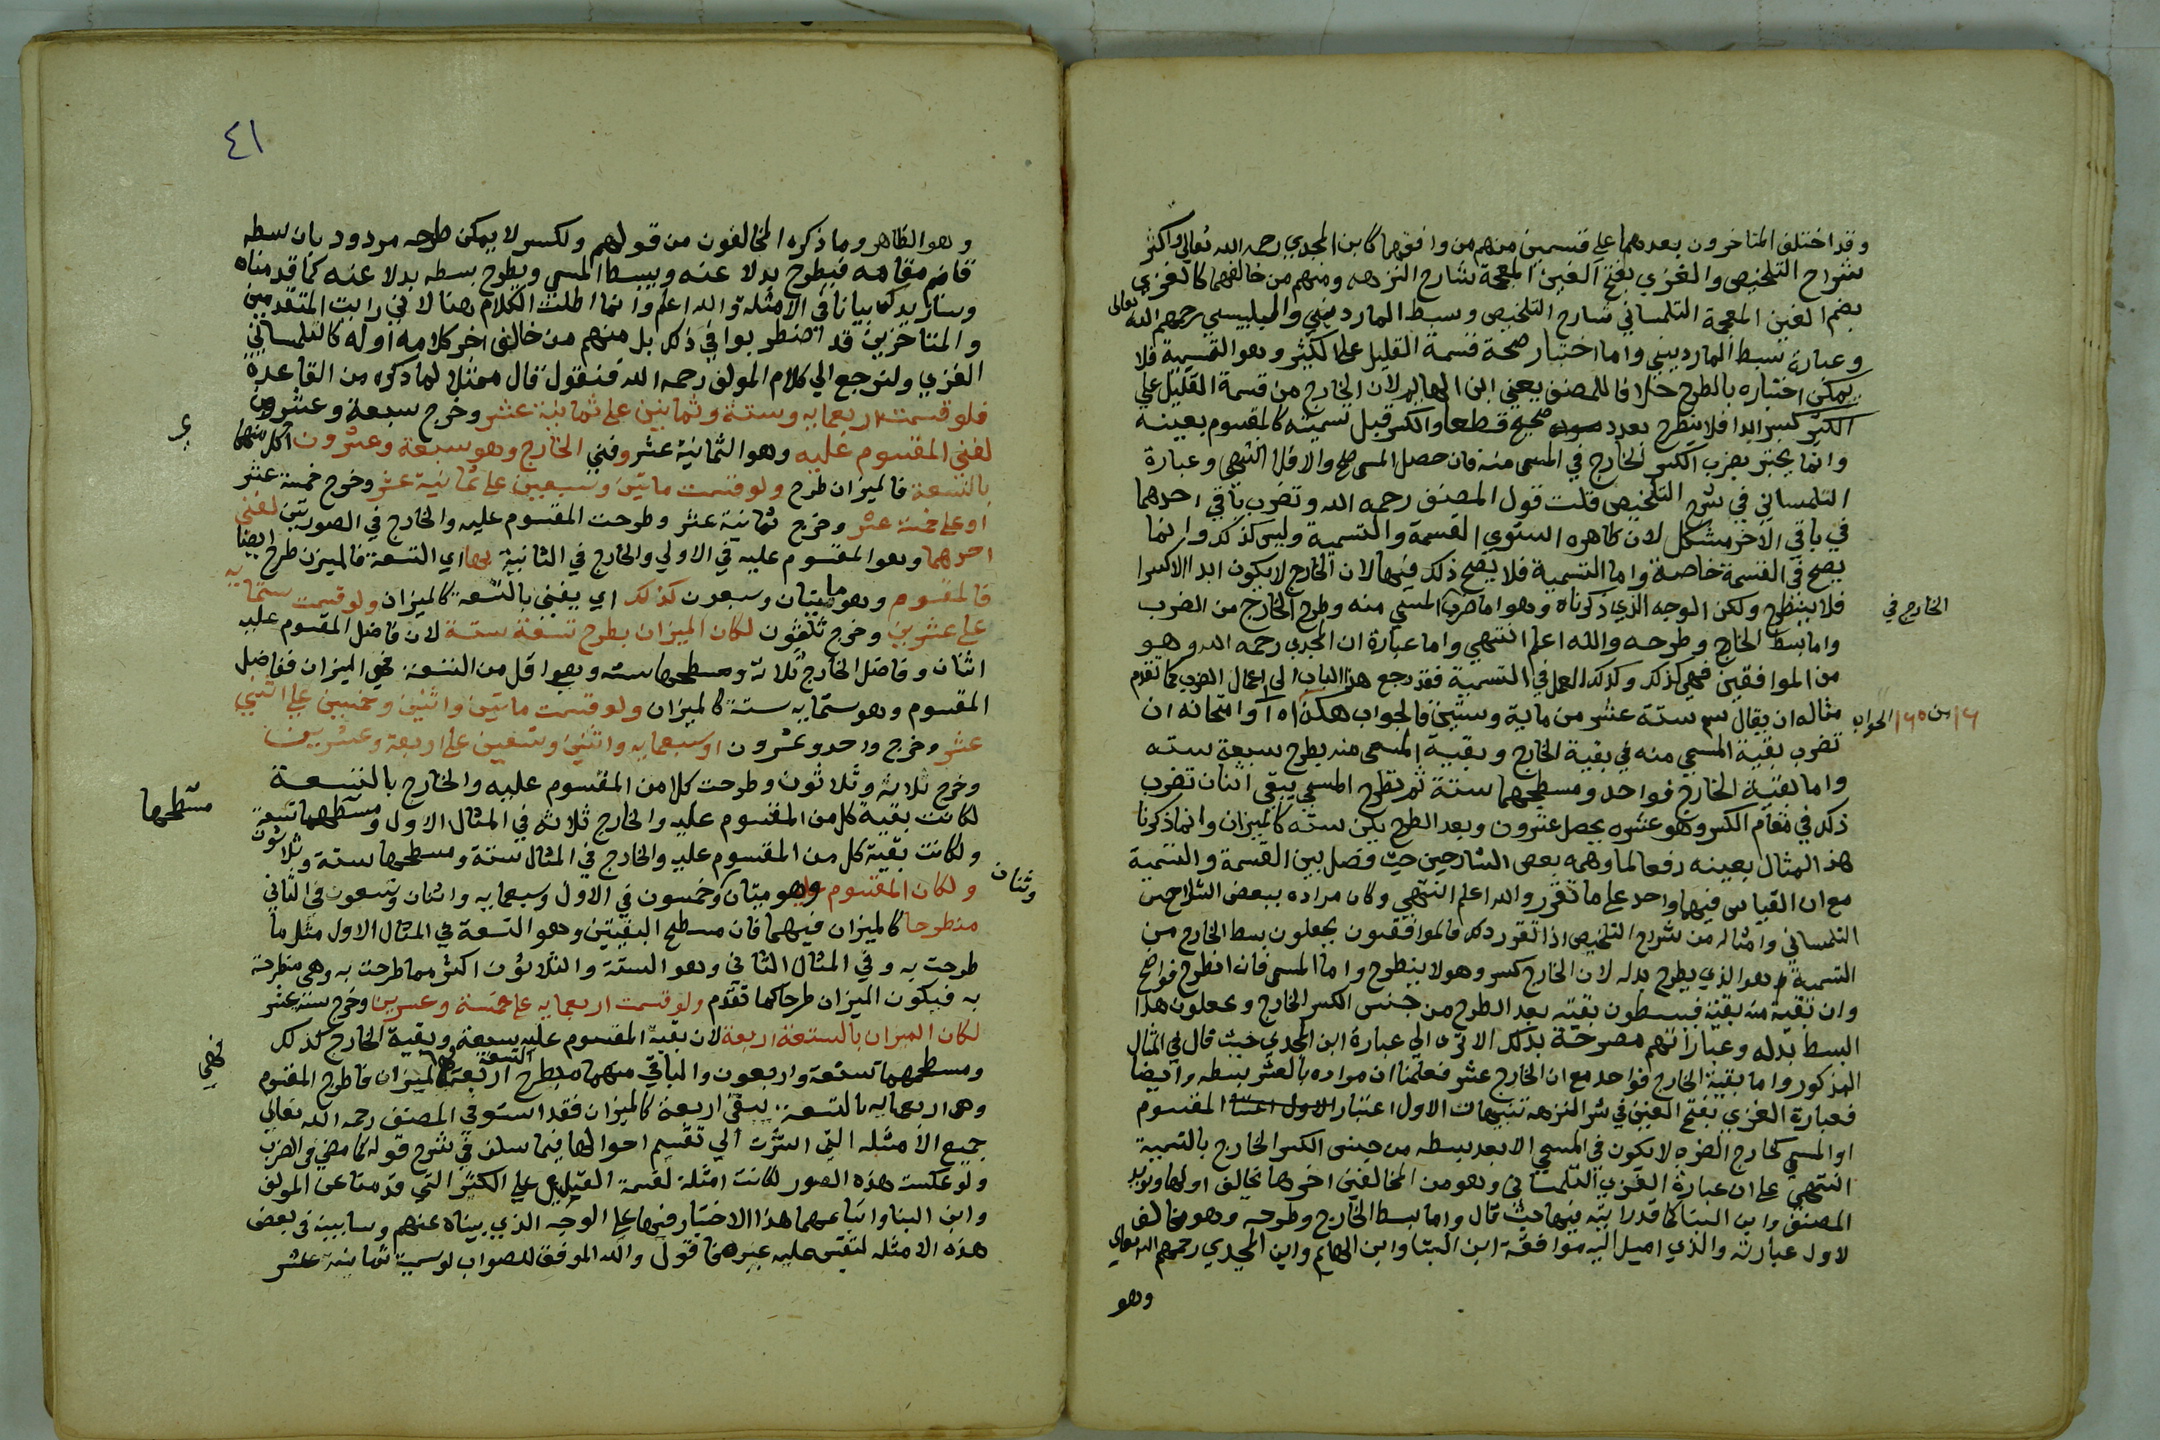 وقد اختلف المتاخرون بعدهما على قسمين منهم من وافقهما كابن المجدي رحمه الله تعالى واكثر
شراح التلخيص والغزي بفتح الغين المعجمة شارح النزهه ومنهم من خالفهما كالغزي
بضم الغين المعجمة التلمساني شارح التلخيص وسبط المارديني والبلبيسي رحمهم الله تعالى
وعبارة سبط المارديني واما اختبار صحة قسمة القليل على الكثير وهو التسمية فلا
يمكن اختباره بالطرح خلافا للمصنف يعني ابن الهايم لان الخارج من قسمة القليل على
الكثير كسر ابدا فلا ينطرح بعدد صحيح قطعا والكسر قبل تسميته كالمقسوم بعينه
وانما يختبر بضرب الكسر الخارج في المسمى منه فان حصل المسمى صح والا فلا انتهى وعبارة
التلمساني في شرح التلخيص قلت قول المصنف رحمه الله وتضرب باقي احدهما
في باقي الاخر مشكل لان ظاهره استوى القسمة والتسمية وليس كذلك وانما
يصح في القسمة خاصة واما التسمية فلا يصح ذلك فيها لان الخارج لا يكون ابدا الا كسرا
فلا ينطرح ولكن الوجه الذي ذكرناه وهو اما ضرب المسمى منه وطرح الخارج من الضرب
الخارج في
واما بسط الخارج وطرحه والله اعلم انتهى واما عبارة ابن المجدي رحمه الله وهو
من الموافقين فهي كذلك وكذلك العمل في التسمية فقد رجع هذا الباب الى اعمال الضرب كما تقدم
مثاله ان يقال سم ستة عشر من ماية وستين فالجواب هكذا وامتحانه ان
١٦ من ١٦٠ الجواب
تضرب بقية المسمى منه في بقية الخارج وبقية المسمى منه بطرح سبعة ستة
واما بقية الخارج فواحد ومسطحهما ستة ثم تطرح المسمى يبقى اثنان تضرب
ذلك في مقام الكسر وهو عشره يحصل عشرون وبعد الطرح يكن ستة كالميزان وانما ذكرنا
هذا المثال بعينه دفعا لما وهمه بعض الشارحين حيث فصل بين القسمة والتسمية
مع ان القياس فيهما واحد على ما تقرر والله اعلم انتهى وكان مراده ببعض الشارحين
التلمساني وامثاله من شراح التلخيص اذا تقرر ذلك فالموافقون يجعلون بسط الخارج من
التسمية هو الذي يطرح بدله لان الخارج كسر وهو لا ينطرح واما المسمى فان انطرح فواضح
وان بقية منه بقية فيبسطون بقيته بعد الطرح من جنس الكسر الخارج ويجعلون هذا
البسط بدله وعباراتهم مصرحة بذلك الا ترى الى عبارة ابن المجدي حيث قال في المثال
المذكور واما بقية الخارج فواحد مع ان الخارج عشر فعلمنا ان مراده بالعشر بسطه وايضا
فعبارة الغزي بفتح الغين في شر النزهه تنبيهات الاول اعتبار المقسوم
او المسمى كخارج الضرب لا يكون في المسمى الا بعد بسطه من جنس الكسر الخارج بالتسمية
انتهى على ان عبارة الغزي التلمساني وهو من المخالفين اخرها تخالف اولها وتويد
المصنف وابن البنا كما قد رايته فيها حيث قال واما بسط الخارج وطرحه وهو مخالف
لاول عبارته والذي اميل اليه موافقة ابن البنا وابن الهايم وابن المجدي رحمهم الله تعالى
وهو
٤١
وهو الظاهر وما ذكره المخالفون من قولهم ولكسر لا يمكن طرحه مردود بان بسطه
قام مقامه فيطرح بدلا عنه ويبسط المسمى ويطرح بسطه بدلا عنه كما قدمناه
وسنزيدك بيانا في الامثلة والله اعلم وانما اطلت الكلام هنا لاني رايت المتقدمين
والمتاخرين قد اضطربوا في ذلك بل منهم من خالف اخر كلامه اوله كالتلمساني
الغزي ولنرجع الى كلام المولف رحمه الله فنقول قال ممثلا لما ذكره من القاعدة
فلو قسمت اربعمايه وستة وثمانين على ثمانية عشر وخرج سبعة وعشرون
لفني المقسوم عليه وهو الثمانية عشر وفني الخارج وهو سبعة وعشرون اي كل منهما
بالتسعة فالميزان طرح ولو قسمت مايتين وسبعين على ثمانية عشر وخرج خمسة عشر
او على خمسة عشر وخرج ثمانية عشر وطرحت المقسوم عليه والخارج في الصورتين لفني
احدهما وهو المقسوم عليه في الاولى والخارج في الثانية بها اي التسعة فالميزن طرح ايضا
فالمقسوم وهو مايتان وسبعون كذلك اي يفنى بالتسعة كالميزان ولو قسمت ستمايه
على عشرين وخرج ثلثون لكان الميزان بطرح تسعة ستة لان فاضل المقسوم عليه
اثنان وفاضل الخارج ثلاثة ومسطحهما ستة وهو اقل من التسعة فهي الميزان ففاضل
المقسوم وهو ستمايه ستة كالميزان ولو قسمت مايتين واثنين وخمسين على اثني
عشر وخرج واحد وعشرون او سبعمايه واثنين وتسعين على اربعة وعشرين
وخرج ثلاثة وثلاثون وطرحت كلا من المقسوم عليه والخارج بالتسعة
لكانت بقية كل من المقسوم عليه والخارج ثلاثة في المثال الاول ومسطحهما تسعة
مسطحهما
ولكانت بقية كل من المقسوم عليه والخارج في المثال ستة ومسطحهما ستة وثلاثون
ولكان المقسوم وهو ميتان وخمسون في الاول وسبعمايه واثنان وتسعون في الثاني
وثنان
منطرحا كالميزان فيهما فان مسطح البقيتين وهو التسعة في المثال الاول مثل ما
طرحت به وفي المثال الثاني وهو الستة والثلاثون اكثر مما طرحت به وهي منطرحة
به فيكون الميزان طرحا كما تقدم ولو قسمت اربعمايه على خمسة وعشرين وخرج ستة عشر
لكان الميزان بالتسعة اربعة لان بقية المقسوم عليه سبعة وبقية الخارج كذلك
ومسطحهما تسعة واربعون والباقي منهما بطرح التسعة اربعة فهي الميزان فاطرح المقسوم
فهي
وهي اربعمايه بالتسعة يبقى اربعة كالميزان فقد استوفى المصنف رحمه الله تعالى
جميع الامثله التي اشرت الى تقسيم احوالها فيما سلف في شرح قوله كما مضى في الضرب
ولو عكست هذه الصور لكانت امثلة لقسمة القليل على الكثير التي قدمنا عن المولف
وابن البنا واتباعهما هذا الاختبار فيها على الوجه الذي بيناه عنهم وسابينه في بعض
هذه الامثله لتقيس عليه غيرها فاقول والله الموفق للصواب لو سميت ثمانية عشر